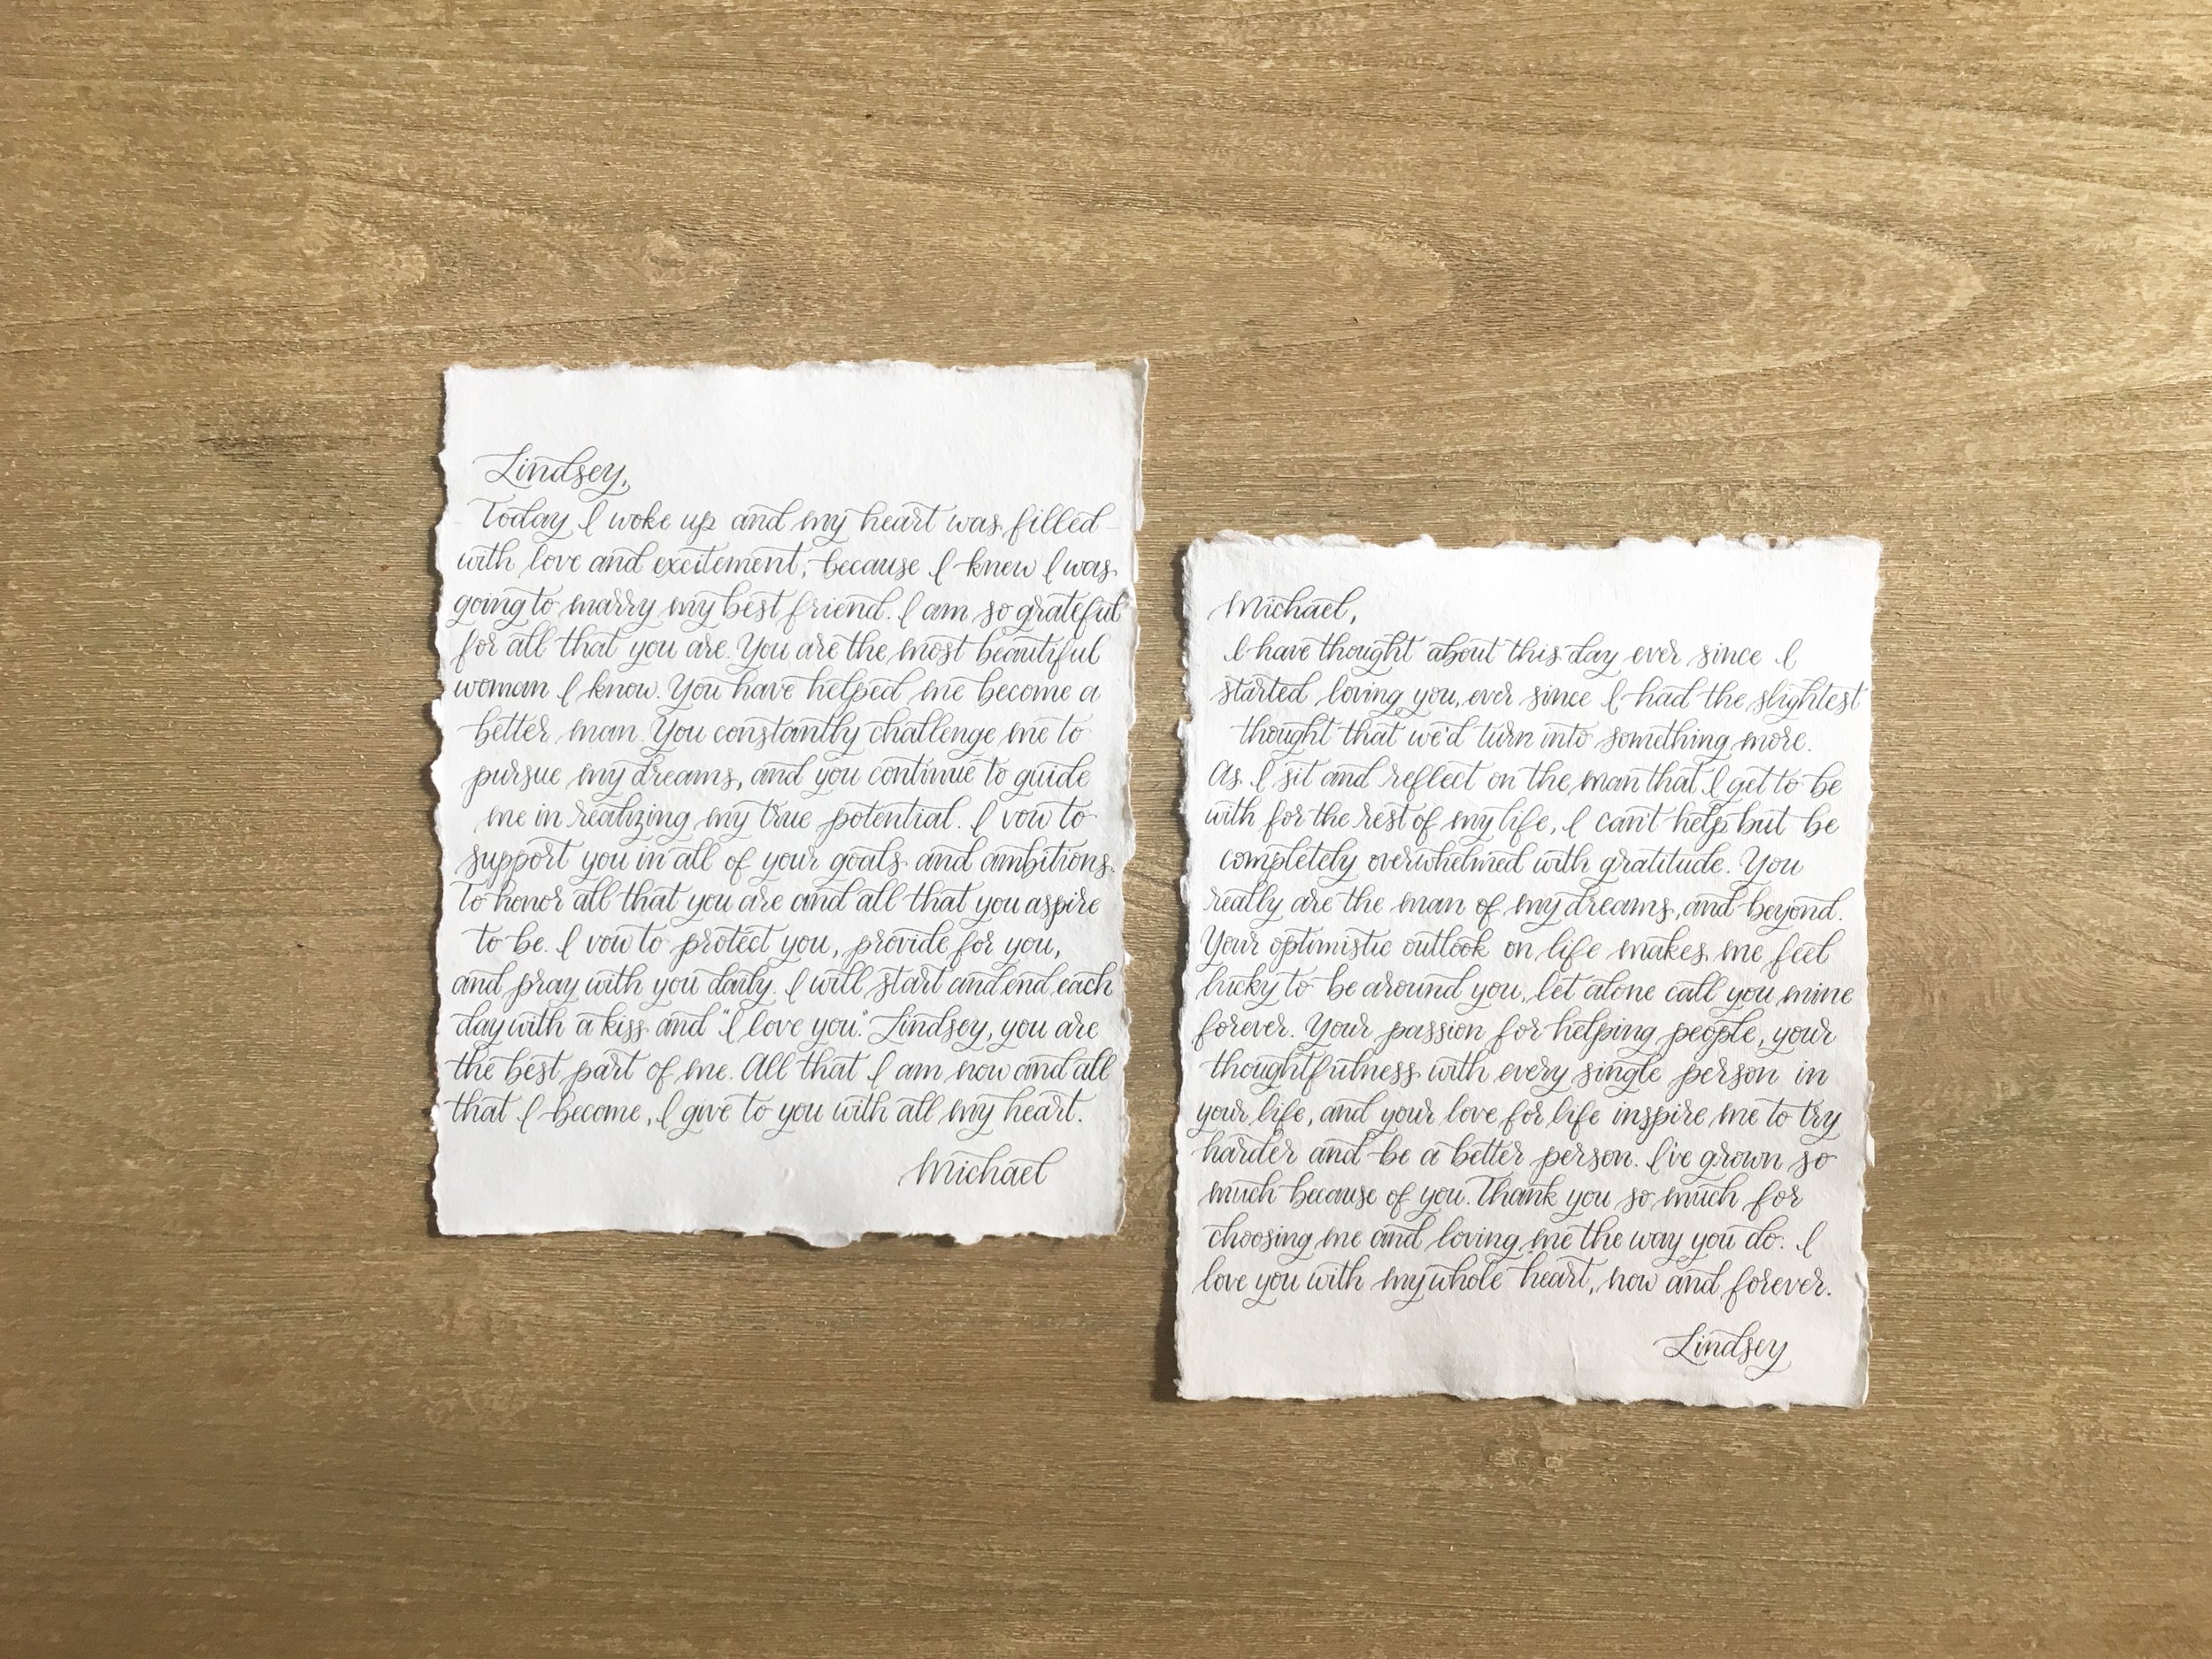 Lindsey,
Today I woke up and my heart was filled
with love and excitement, because I knew I was
going to marry my best friend. I am so grateful
for all that you are. You are the most beautiful
woman I know. You have helped me become a
better man. You constantly challenge me to
pursue my dreams, and you continue to guide
me in realizing my true potential. I vow to
support you in all of your goals and ambitions.
To honor all that you are and all that you aspire
to be. I vow to protect you, provide for you,
and pray with you daily. I will start and end each
day with a kiss and "I love you." Lindsey, you are
the best part of me. All that I am now and all
that I become, I give to you with all my heart.
Michael
Michael,
I have thought about this day ever since I
started loving you, ever since I had the slightest
thought that we'd turn into something more.
As I sit and reflect on the man that I get to be
with for the rest of my life, I can't help but be
completely overwhelmed with gratitude. You
really are the man of my dreams, and beyond.
Your optimistic outlook on life makes me feel
lucky to be around you, let alone call you mine
forever. Your passion for helping people, your
thoughtfulness with every single person in
your life, and your love for life inspire me to try
harder and be a better person. I've grown so
much because of you. Thank you so much for
choosing me and loving me the way you do. I
love you with my whole heart, now and forever.
Lindsey